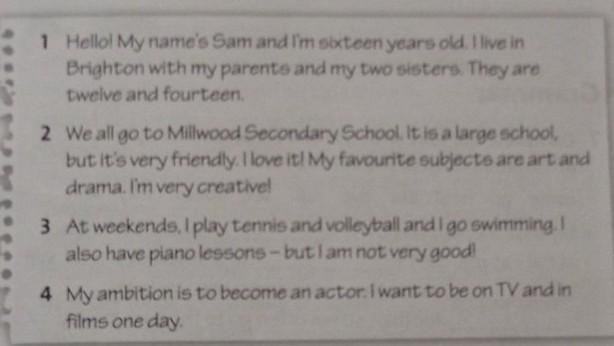 1 Hello! My name's Sam and I'm sixteen years old. I live in
Brighton with my parents and my two sisters. They are
twelve and fourteen.
2 We all go to Millwood Secondary School. It is a large school,
but it's very friendly. I love it! My favourite subjects are art and
drama. I'm very creative!
3 At weekends, I play tennis and volleyball and I go swimming. I
also have piano lessons – but I am not very good!
4 My ambition is to become an actor. I want to be on TV and in
films one day.